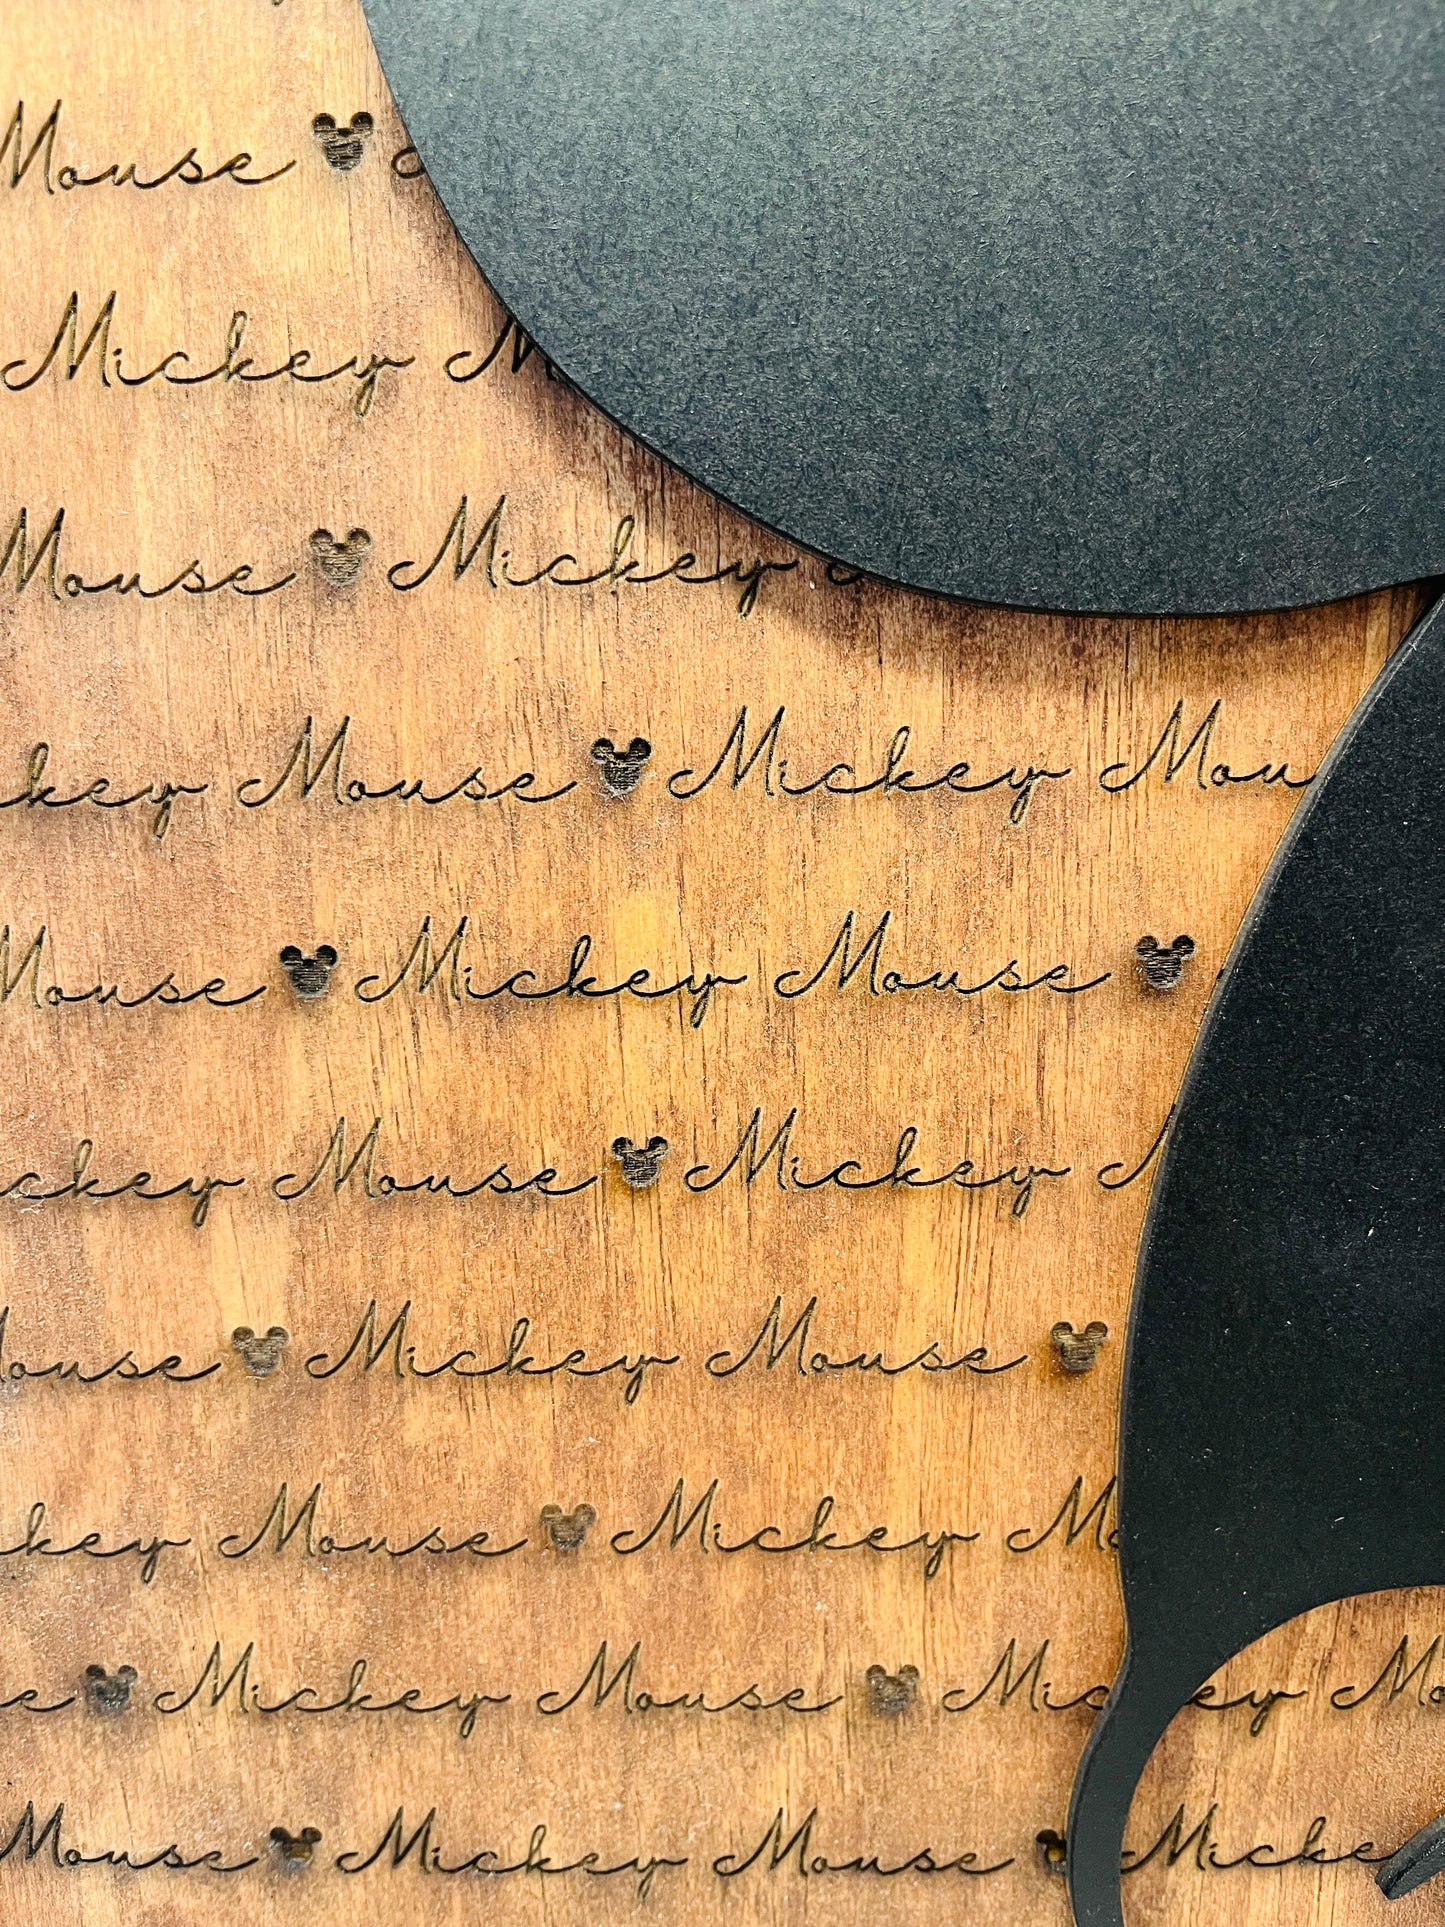 Mouse
Mickey M
Mouse Mickey
key Mouse Mickey Mou
Mouse Mickey Mouse
ckey Mouse Mickey M
ouse Mickey Mouse
key Mouse Mickey Mo
e Mickey Mouse Mic ey Mo
Mouse Mickey Mouse Micke